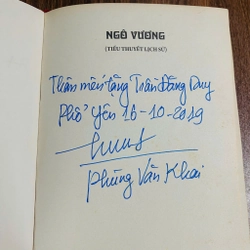 NGÔ VƯƠNG
(TIỂU THUYẾT LỊCH SỬ)
Thân mến tặng Trần Đăng Duy
Phổ Yên 16-10-2019
Phùng Văn Khai